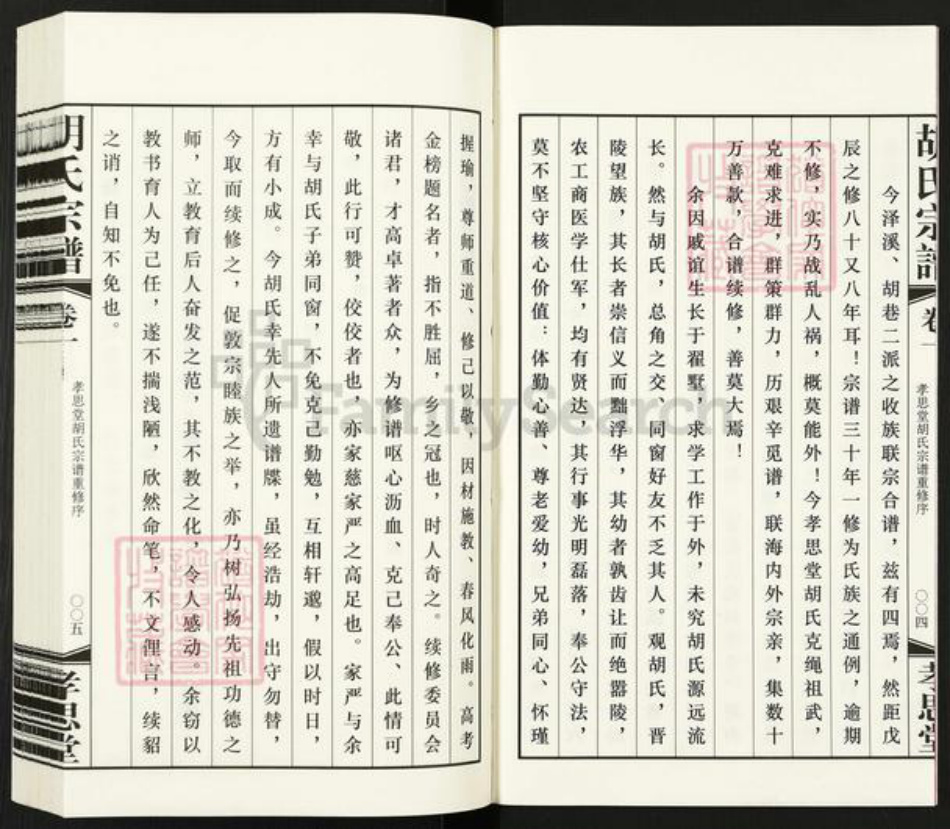 胡氏宗譜
卷一
孝思堂胡氏宗谱重修序
〇〇四
孝思堂
今泽溪、胡巷二派之收族联宗合谱，兹有四焉，然距戊
辰之修八十又八年耳！宗谱三十年一修为氏族之通例，逾期
不修，实乃战乱人祸，概莫能外！今孝思堂胡氏克绳祖武，
克难求进，群策群力，历艰辛觅谱，联海内外宗亲，集数十
万善款，合谱续修，善莫大焉！
余因戚谊生长于翟墅，求学工作于外，未究胡氏源远流
长。然与胡氏，总角之交、同窗好友不乏其人。观胡氏，晋
陵望族，其长者崇信义而黜浮华，其幼者孰齿让而绝嚣陵，
农工商医学仕军，均有贤达，其行事光明磊落，奉公守法，
莫不坚守核心价值：体勤心善、尊老爱幼，兄弟同心、怀瑾
握瑜，尊师重道、修己以敬，因材施教、春风化雨。高考
金榜题名者，指不胜屈，乡之冠也，时人奇之。续修委员会
诸君，才高卓著者众，为修谱呕心沥血、克己奉公、此情可
敬，此行可赞，佼佼者也，亦家慈家严之高足也。家严与余
幸与胡氏子弟同窗，不免克己勤勉，互相轩邈，假以时日，
方有小成。今胡氏幸先人所遗谱牒，虽经浩劫，出守勿替，
今取而续修之，促敦宗睦族之举，亦乃树弘扬先祖功德之
师，立教育后人奋发之范，其不教之化，令人感动。余窃以
教书育人为己任，遂不揣浅陋，欣然命笔，不文俚言，续貂
之诮，自知不免也。
胡氏宗譜
卷一
孝思堂胡氏宗谱重修序
〇〇五
孝思堂
FamilySearch